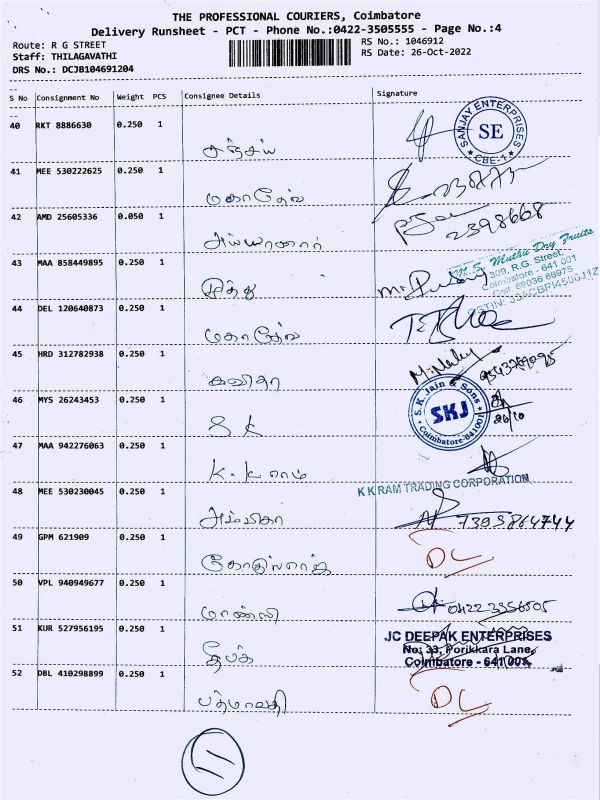 THE PROFESSIONAL COURIERS, Coimbatore
Delivery Runsheet - PCT - Phone No.:0422-3505555 - Page No.:4
Route: R G STREET
RS No.: 1046912
Staff: THILAGAVATHI
RS Date: 26-Oct-2022
DRS No.: DCJB104691204
S No Consignment No Weight PCS Consignee Details Signature
40 RKT 8886630 0.250 1
சஞ்சய்
SANJAY ENTERPRISES
SE
CBE-1
41 MEE 530222625 0.250 1
மகாதேவ்
42 AMD 25605336 0.050 1
2398668
அய்யானார்
43 MAA 858449895 0.250 1
M.S. Muthu Dry Fruits
309, R.G. Street,
Coimbatore - 641 001
முத்து
44 DEL 120640873 0.250 1
மகாதேவ
45 HRD 312782938 0.250 1
கவிதா
46 MYS 26243453 0.250 1
S.K. Jain & Sons
SKJ
Coimbatore-641001
26/10
S K
47 MAA 942276063 0.250 1
K.K ராம்
K K RAM TRADING CORPORATION
48 MEE 530230045 0.250 1
அம்பிகா
7395864744
49 GPM 621909 0.250 1
DL
50 VPL 940949677 0.250 1
04222356505
51 KUR 527956195 0.250 1
JC DEEPAK ENTERPRISES
No: 33, Porikkara Lane,
Coimbatore - 641 001.
தீபக்
52 DBL 410298899 0.250 1
DL
பத்மாவதி
11